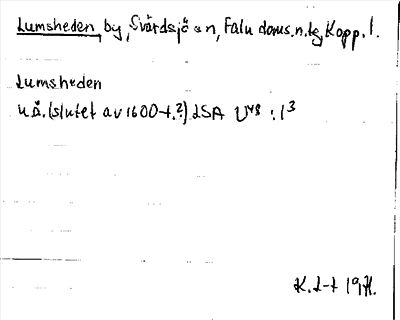 Lumsheden, by, Svärdsjö sn, Falu doms.n.tg, Kopp. l.
Lumsheden
u.å. (slutet av 1600-t.?) LSA U48 : 1³
K. L-t 1971.